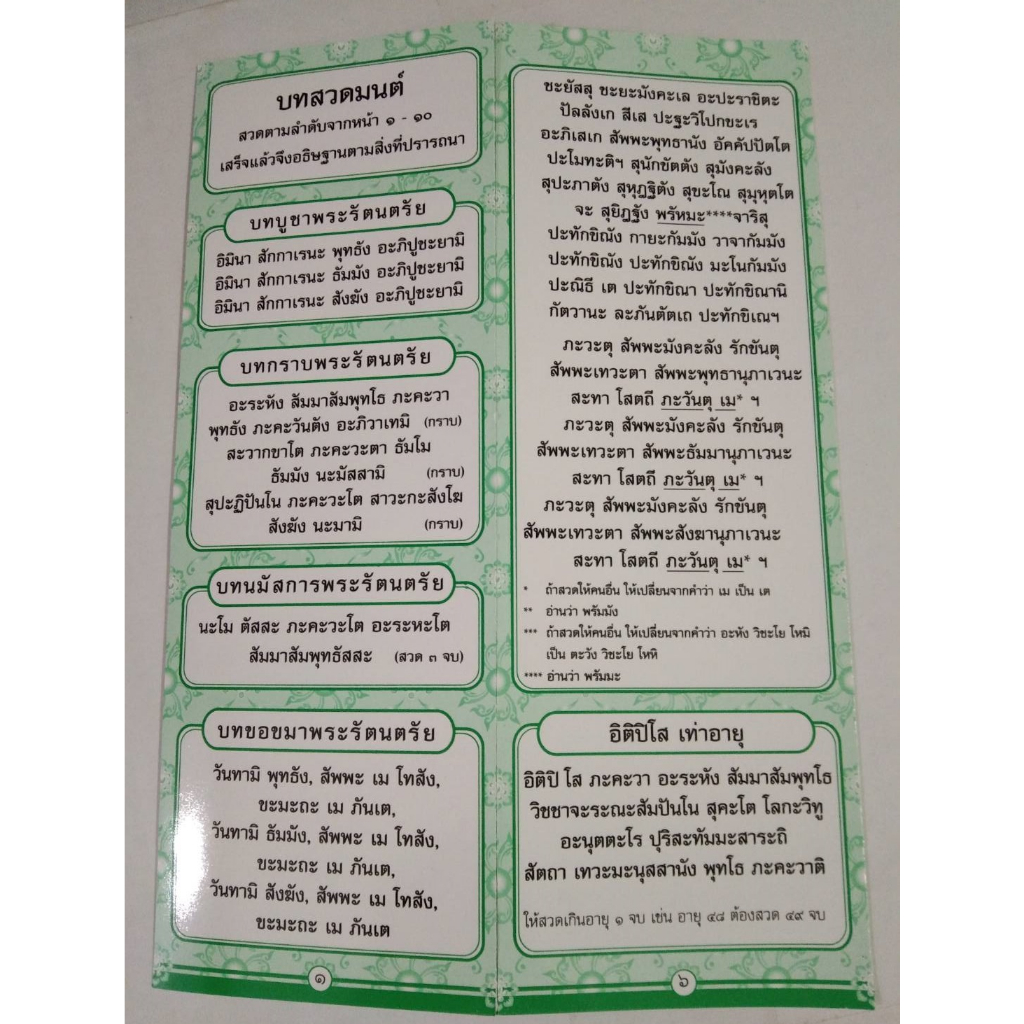 บทสวดมนต์
สวดตามลำดับจากหน้า ๑ - ๑๐
เสร็จแล้วจึงอธิษฐานตามสิ่งที่ปรารถนา
บทบูชาพระรัตนตรัย
อิมินา สักกาเรนะ พุทธัง อะภิปูชะยามิ
อิมินา สักกาเรนะ ธัมมัง อะภิปูชะยามิ
อิมินา สักกาเรนะ สังฆัง อะภิปูชะยามิ
บทกราบพระรัตนตรัย
อะระหัง สัมมาสัมพุทโธ ภะคะวา
พุทธัง ภะคะวันตัง อะภิวาเทมิ (กราบ)
สะวากขาโต ภะคะวะตา ธัมโม
ธัมมัง นะมัสสามิ (กราบ)
สุปะฏิปันโน ภะคะวะโต สาวะกะสังโฆ
สังฆัง นะมามิ (กราบ)
บทนมัสการพระรัตนตรัย
นะโม ตัสสะ ภะคะวะโต อะระหะโต
สัมมาสัมพุทธัสสะ (สวด ๓ จบ)
บทขอขมาพระรัตนตรัย
วันทามิ พุทธัง, สัพพะ เม โทสัง,
ขะมะถะ เม ภันเต,
วันทามิ ธัมมัง, สัพพะ เม โทสัง,
ขะมะถะ เม ภันเต,
วันทามิ สังฆัง, สัพพะ เม โทสัง,
ขะมะถะ เม ภันเต
๑
ชะยัสสุ ชะยะมังคะเล อะปะราชิตะ
ปัลลังเก สีเส ปะฐะวิโปกขะเร
อะภิเสเก สัพพะพุทธานัง อัคคัปปัตโต
ปะโมทะติฯ สุนักขัตตัง สุมังคะลัง
สุปะภาตัง สุหุฏฐิตัง สุขะโณ สุมุหุตโต
จะ สุยิฏฐัง พรัหมะ****จาริสุ
ปะทักขิณัง กายะกัมมัง วาจากัมมัง
ปะทักขิณัง ปะทักขิณัง มะโนกัมมัง
ปะณิธี เต ปะทักขิณา ปะทักขิณานิ
กัตวานะ ละภันตัตเถ ปะทักขิเณฯ
ภะวะตุ สัพพะมังคะลัง รักขันตุ
สัพพะเทวะตา สัพพะพุทธานุภาเวนะ
สะทา โสตถี ภะวันตุ เม* ฯ
ภะวะตุ สัพพะมังคะลัง รักขันตุ
สัพพะเทวะตา สัพพะธัมมานุภาเวนะ
สะทา โสตถี ภะวันตุ เม* ฯ
ภะวะตุ สัพพะมังคะลัง รักขันตุ
สัพพะเทวะตา สัพพะสังฆานุภาเวนะ
สะทา โสตถี ภะวันตุ เม* ฯ
* ถ้าสวดให้คนอื่น ให้เปลี่ยนจากคำว่า เม เป็น เต
** อ่านว่า พรัมมัง
*** ถ้าสวดให้คนอื่น ให้เปลี่ยนจากคำว่า อะหัง วิชะโย โหมิ
เป็น ตะวัง วิชะโย โหหิ
**** อ่านว่า พรัมมะ
อิติปิโส เท่าอายุ
อิติปิ โส ภะคะวา อะระหัง สัมมาสัมพุทโธ
วิชชาจะระณะสัมปันโน สุคะโต โลกะวิทู
อะนุตตะโร ปุริสะทัมมะสาระถิ
สัตถา เทวะมะนุสสานัง พุทโธ ภะคะวาติ
ให้สวดเกินอายุ ๑ จบ เช่น อายุ ๔๘ ต้องสวด ๔๙ จบ
๖